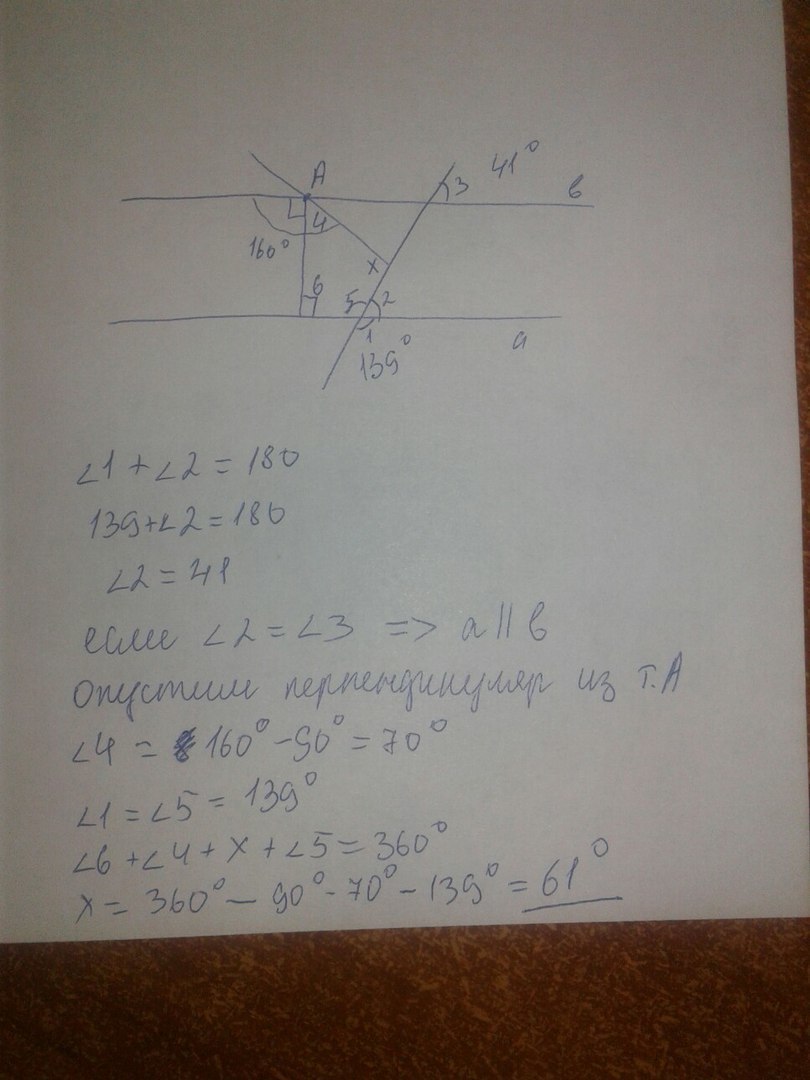 A
41°
3
в
4
160°
x
6
5
2
1
139°
a
∠1 + ∠2 = 180
139+∠2 = 180
∠2 = 41
если ∠2 = ∠3 => a || в
Опустим перпендикуляр из т.А
∠4 = 160° - 90° = 70°
∠1 = ∠5 = 139°
∠6 + ∠4 + x + ∠5 = 360°
x = 360° - 90° - 70° - 139° = 61°